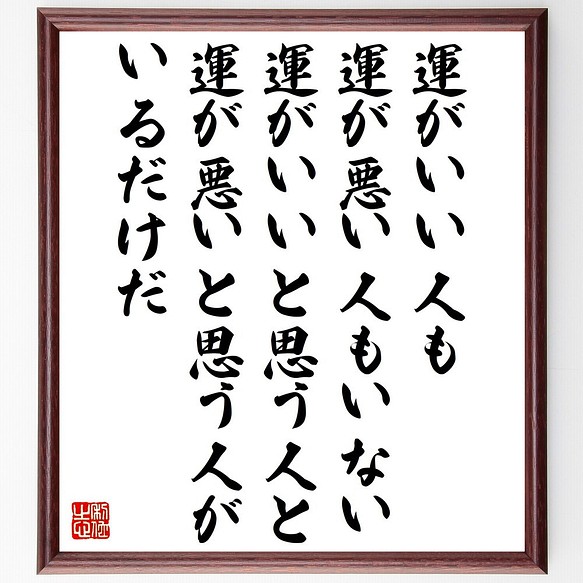 運がいい人も
運が悪い人もいない
運がいいと思う人と
運が悪いと思う人が
いるだけだ